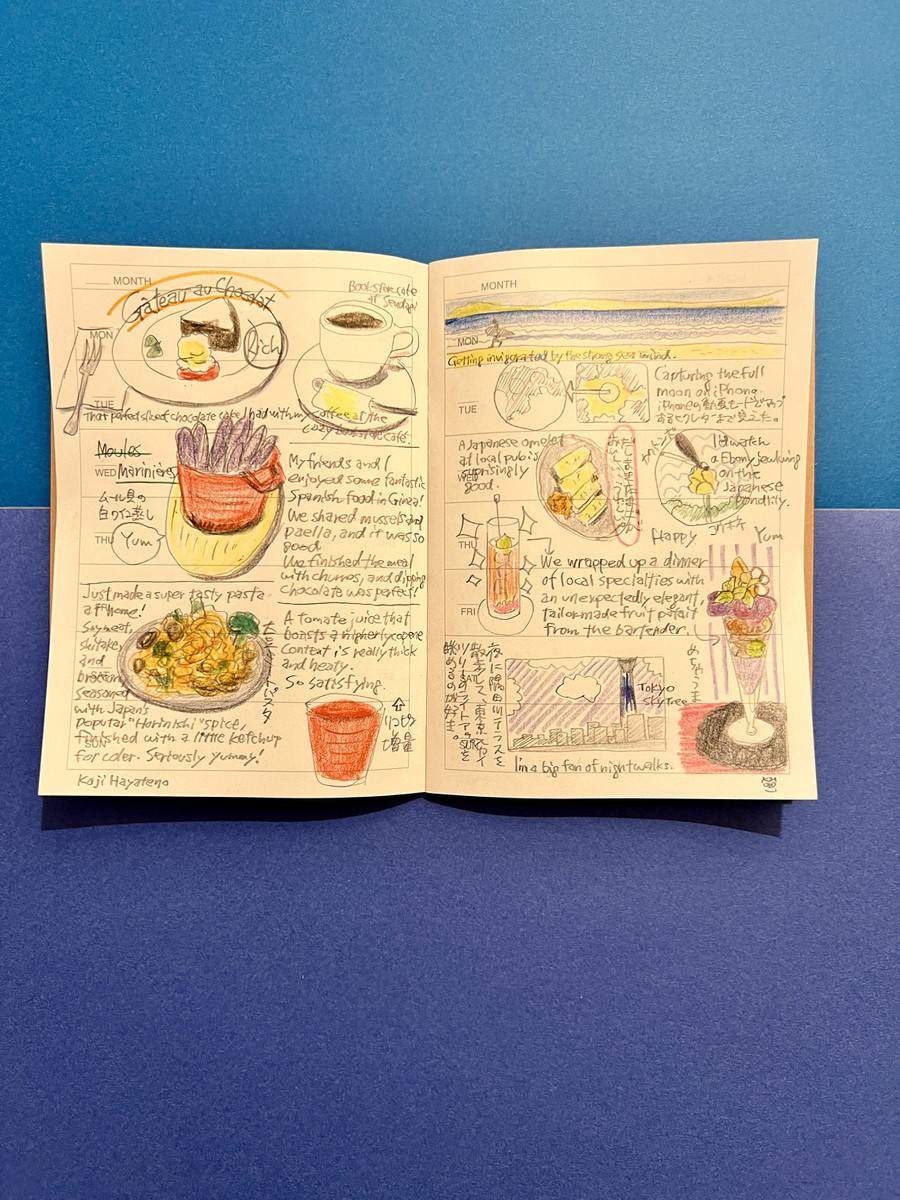 MONTH
Gâteau au Chocolat
Bookstore cafe
at Sendagi
MON
Rich
TUE
That perfect slice of chocolate cake I had with my coffee at the
cozy bookstore cafe.
Moules
WED Marinières
ムール貝の
白ワイン蒸し
THU Yum
My friends and I
enjoyed some fantastic
Spanish food in Ginza!
We shared mussels and
paella, and it was so
good
We finished the meal
with churros, and dipping
chocolate was perfect!
Just made a super tasty pasta
at home!
Soy meat,
shiitake,
and
broccoli,
seasoned
with Japan's
popular "Horinishi" spice,
SUN finished with a little ketchup
for color. Seriously yummy!
A tomato juice that
boasts a higher lycopene
content is really thick
and heaty.
So satisfying.
リコピン
増量
Koji Hayateno
MONTH
MON
Getting invigorated by the strong sea wind.
TUE
Capturing the full
moon on iPhone.
iPhoneの動画モードでアップ
するとクレーターまで見えた。
A Japanese omelet
at local pub is
WED surprisingly
good.
I'd watch
a Ebony Jewelwing
on the
Japanese
pondlily.
Happy
コウホネ
Yum
THU
FRI
We wrapped up a dinner
of local specialties with
an unexpectedly elegant,
tailor-made fruit parfait
from the bartender.
めちゃうま
夜に隅田川テラスを
散歩して、東京スカイ
ツリーのライトアップを
眺めるのが好き。
SAT
Tokyo
SkyTree
SUN
I'm a big fan of night walks.